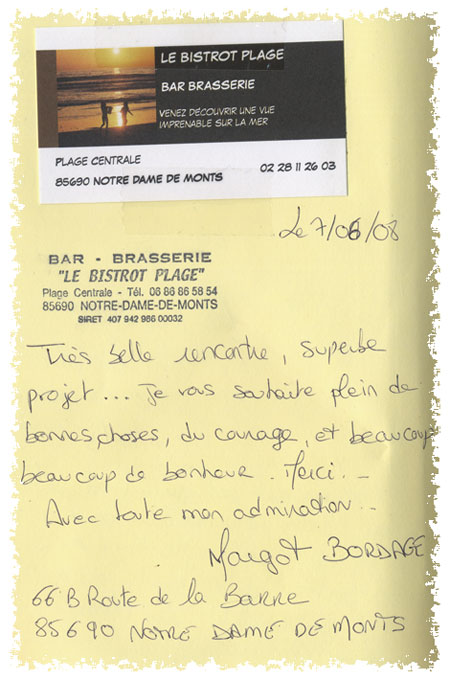 LE BISTROT PLAGE
BAR BRASSERIE
VENEZ DÉCOUVRIR UNE VUE
IMPRENABLE SUR LA MER
PLAGE CENTRALE
02 28 11 26 03
85690 NOTRE DAME DE MONTS
Le 7/06/08
BAR - BRASSERIE
"LE BISTROT PLAGE"
Plage Centrale - Tél. 06 86 86 58 54
85690 NOTRE-DAME-DE-MONTS
SIRET 407 942 986 00032
Très belle rencontre, superbe
projet... Je vous souhaite plein de
bonnes choses, du courage, et beaucoup
beaucoup de bonheur. Merci.-
Avec toute mon admiration..
Margot BORDAGE
66 B Route de la Barre
85690 NOTRE DAME DE MONTS